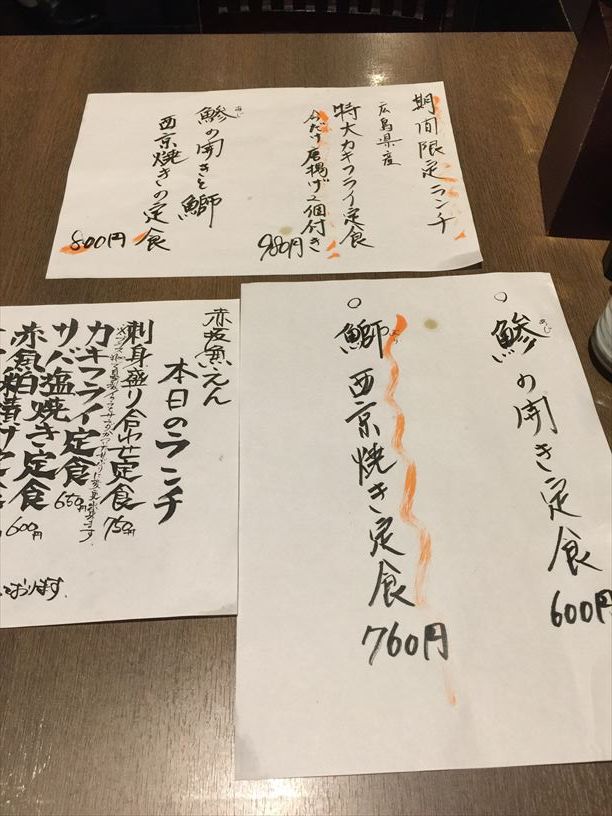 期間限定ランチ
広島県産
特大カキフライ定食
今だけ唐揚げ2個付き
980円
鯵の開きと鰤
あじ
西京焼きの定食
800円
鯵の開き定食
あじ
600円
鰤西京焼き定食
ぶり
760円
赤坂魚えん
本日のランチ
刺身盛り合わせ定食
750円
カキフライ定食
サバ塩焼き定食
650円
赤魚粕漬け定食
600円
おります